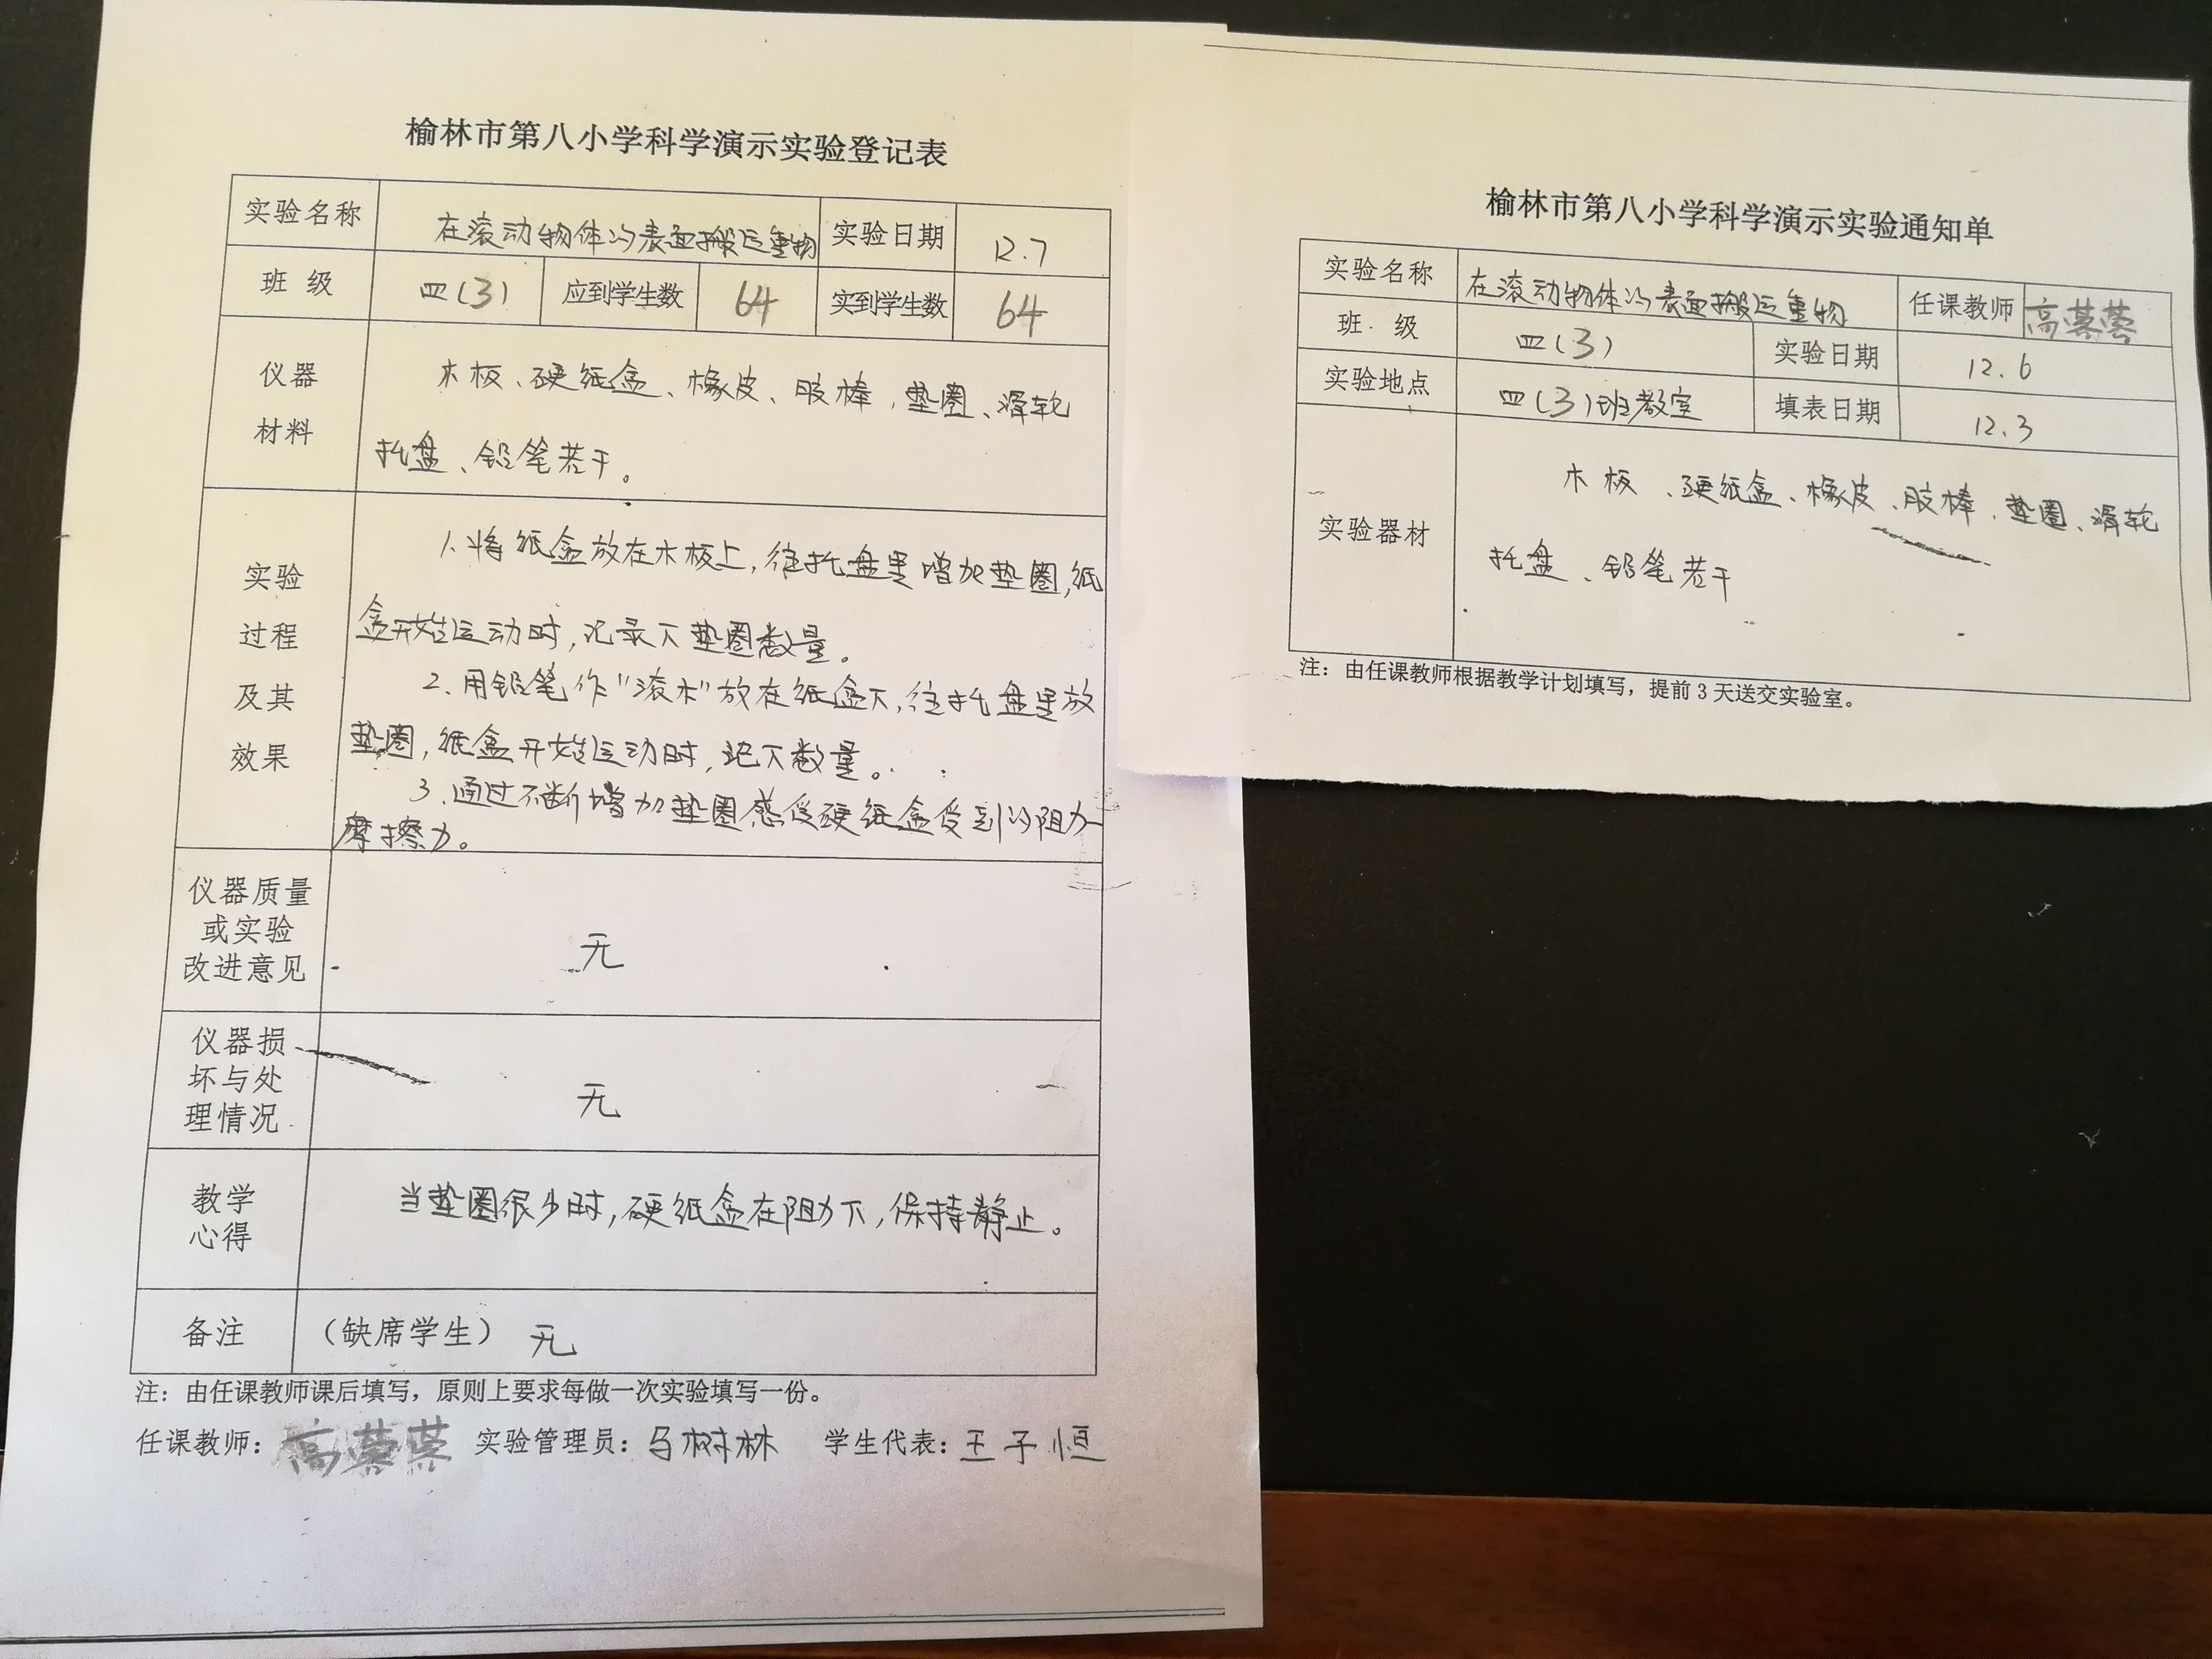 榆林市第八小学科学演示实验登记表
实验名称 在滚动物体的表面搬运重物 实验日期 12.7
班 级 四(3) 应到学生数 64 实到学生数 64
仪器
材料
木板、硬纸盒、橡皮、胶棒、垫圈、滑轮
托盘、铅笔若干。
实验
过程
及其
效果
1.将纸盒放在木板上,往托盘里增加垫圈,纸
盒开始运动时,记录下垫圈数量。
2.用铅笔作"滚木"放在纸盒下,往托盘里放
垫圈,纸盒开始运动时,记下数量。
3.通过不断增加垫圈感受硬纸盒受到的阻力—
摩擦力。
仪器质量
或实验
改进意见
无
仪器损
坏与处
理情况
无
教学
心得
当垫圈很少时,硬纸盒在阻力下,保持静止。
备注 (缺席学生) 无
注：由任课教师课后填写，原则上要求每做一次实验填写一份。
任课教师： 高 实验管理员：马树林 学生代表：王子恒
榆林市第八小学科学演示实验通知单
实验名称 在滚动物体的表面搬运重物 任课教师 高
班 级 四(3) 实验日期 12.6
实验地点 四(3)班教室 填表日期 12.3
实验器材
木板、硬纸盒、橡皮、胶棒、垫圈、滑轮
托盘、铅笔若干
注：由任课教师根据教学计划填写，提前3天送交实验室。